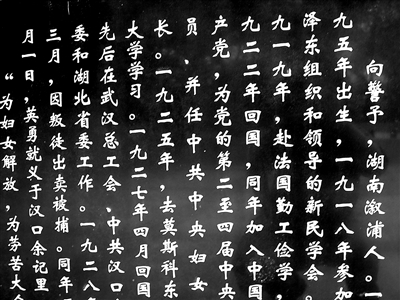 向警予，湖南溆浦人。一
九五年出生，一九一八年参加
泽东组织和领导的新民学会。
九一九年，赴法国勤工俭学，一
九二二年回国，同年加入中国
产党，为党的第二至四届中央
员、并任中共中央妇女
长。一九二五年，去莫斯科东
大学学习。一九二七年四月回国
先后在武汉总工会、中共汉口
委和湖北省委工作。一九二八
三月，因叛徒出卖被捕。同年
月一日，英勇就义于汉口余记里
“为妇女解放，为劳苦大